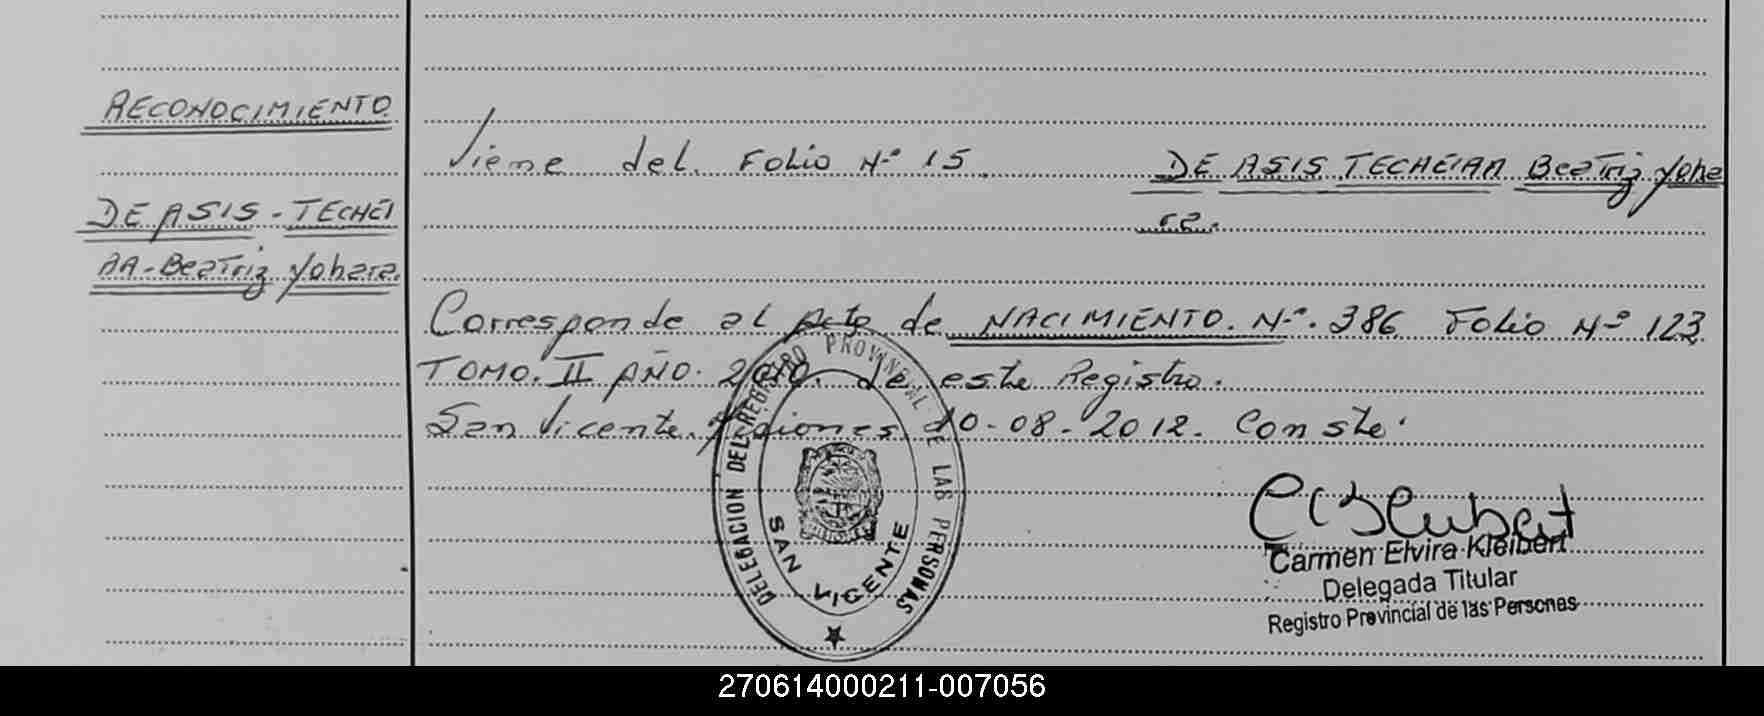 RECONOCIMIENTO
DE ASIS - TECHEI
AA - Beatriz Yohara.
Viene del Folio Nº 15. DE ASIS TECHEIAA Beatriz Yoha
ra.
Corresponde al Acto de NACIMIENTO. Nº. 386 Folio Nº 123
TOMO. II AÑO. 2010. de este Registro.
San Vicente, Misiones 10-08-2012. Conste.
DELEGACION DEL REGISTRO PROVINCIAL DE LAS PERSONAS
SAN VICENTE
Carmen Elvira Kleibert
Delegada Titular
Registro Provincial de las Personas
270614000211-007056